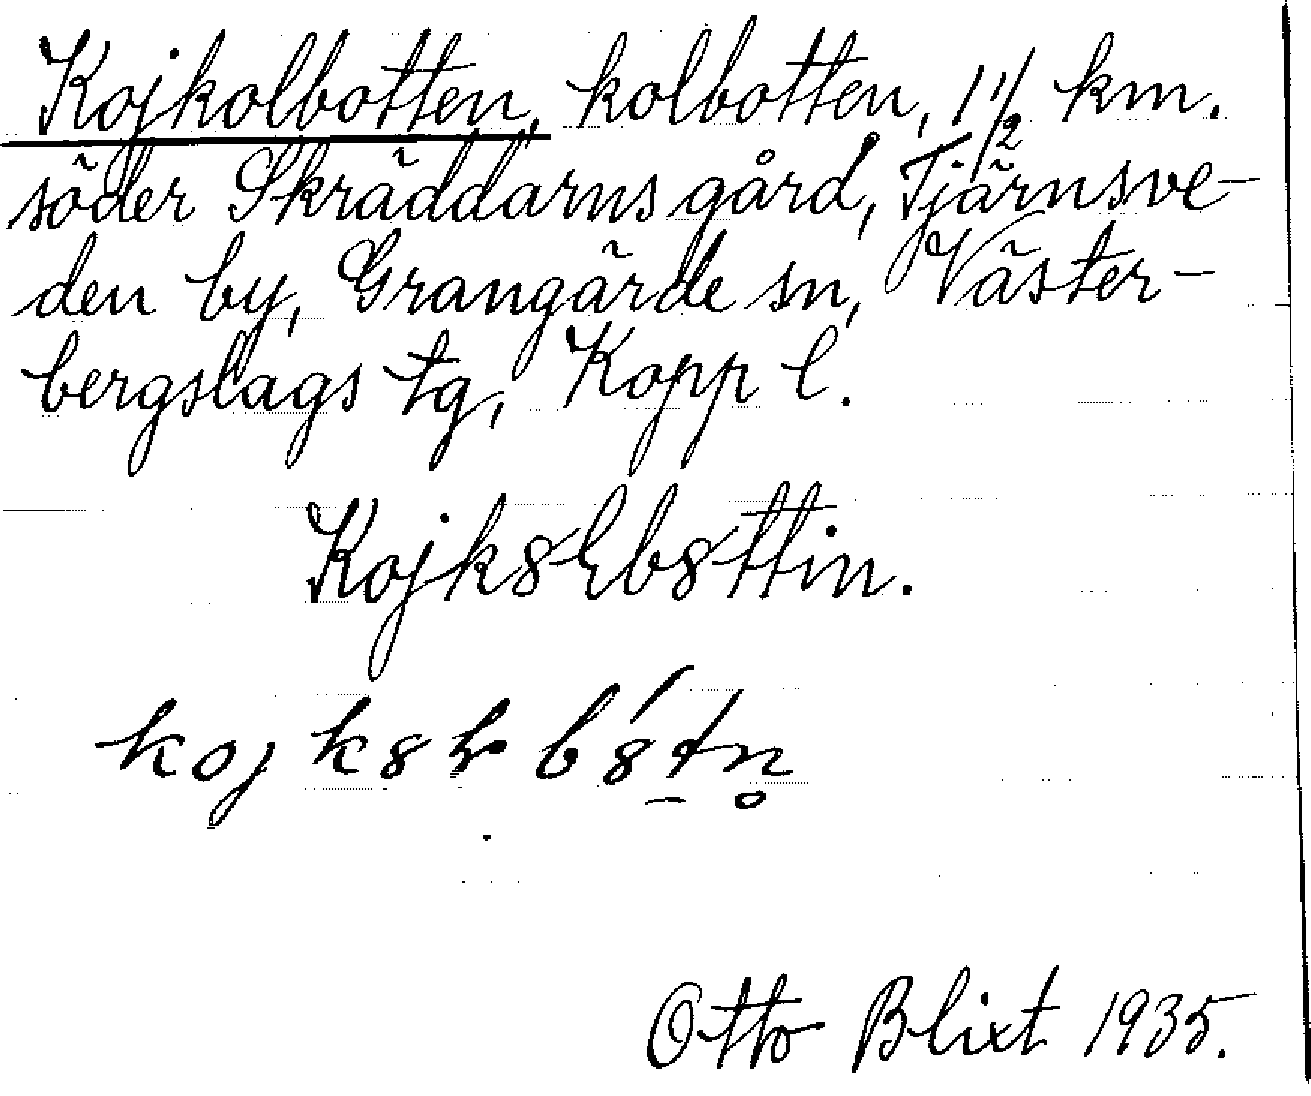 Kojkolbotten, kolbotten, 1 1/2 km.
söder Skräddarns gård, Tjärnsve-
den by, Grangärde sn, Väster-
bergslags tg, Kopp l.
Kojk8lb8ttin.
Otto Blixt 1935.